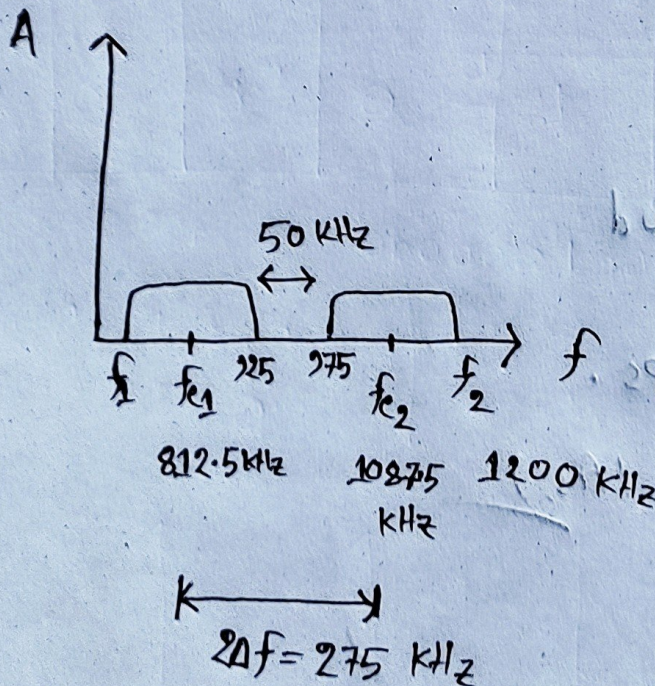 A
50 KHz
f1 fc1 925 975 fc2 f2 f
812.5KHz 1087.5 1200 KHz
KHz
2Δf = 275 KHz